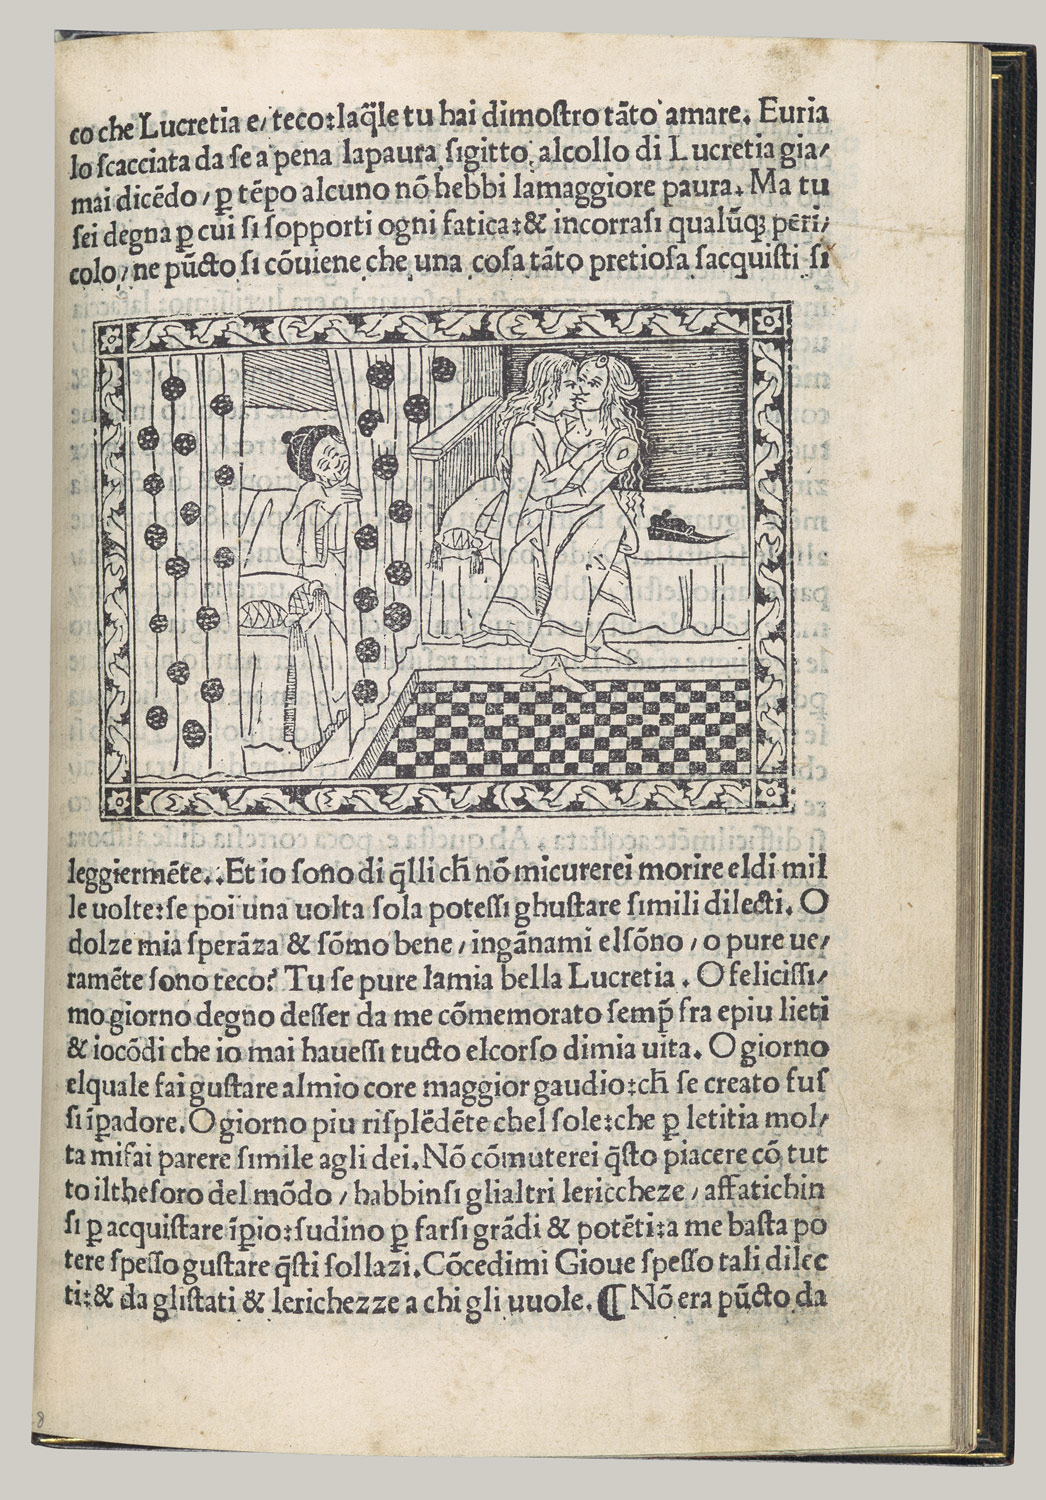 co che Lucretia e/ teco:laq̃le tu hai dimoſtro tãto amare. Euria
lo ſcacciata da ſe a pena lapaura ſigitto alcollo di Lucretia gia/
mai dicẽdo/ ꝑ tẽpo alcuno nõ hebbi lamaggiore paura. Ma tu
ſei degna ꝑ cui ſi ſopporti ogni fatica:& incorraſi qualũqꝫ peri/
colo/ ne pũcto ſi cõuiene che una coſa tãto pretioſa ſacquiſti ſi
leggiermẽte. Et io ſono di q̃lli ch̃ nõ micurerei morire eldi mil
le uolte:ſe poi una uolta ſola poteſſi ghuſtare ſimili dilecti. O
dolze mia ſperãza & ſõmo bene/ ingãnami elſõno/ o pure ue/
ramẽte ſono teco? Tu ſe pure lamia bella Lucretia. O feliciſſi/
mo giorno degno deſſer da me cõmemorato ſemp̃ fra epiu lieti
& iocõdi che io mai haueſſi tucto elcorſo dimia uita. O giorno
elquale fai guſtare almio core maggior gaudio:ch̃ ſe creato fuſ
ſi ĩpadore. O giorno piu riſplẽdẽte chel ſole:che ꝑ letitia mol/
ta mifai parere ſimile agli dei. Nõ cõmuterei q̃ſto piacere cõ tut
to iltheſoro del mõdo/ habbinſi glialtri lericcheze/ affatichin
ſi ꝑ acquiſtare ĩpio:ſudino ꝑ farſi grãdi & potẽti:a me baſta po
tere ſpeſſo guſtare q̃ſti ſollazi. Cõcedimi Gioue ſpeſſo tali dilec
ti:& da gliſtati & lerichezze a chi gli uuole. ¶ Nõ era pũcto da
8